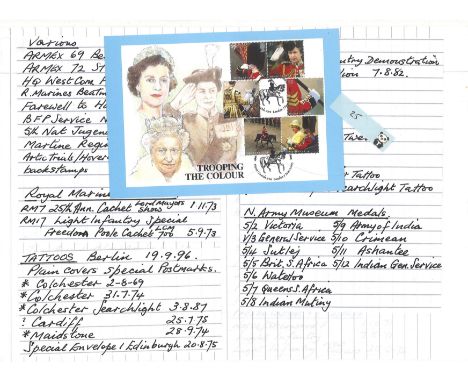 Various
ARMEX 69 Be
ARMEX 72 St
HQ West Com F
R. Marines Beatin
Farewell to Ho
BFP Service N
5th Nat Jugen
Martine Regim
Artic Trials/Hover
backstamps
Royal Marine
RM7 25th Ann. Cachet Lord Mayors Show 1.11.73
RM17 Light Infantry Special
Freedom Poole Cachet 5.9.73
TATTOOS Berlin 19.9.96.
Plain covers special Postmarks.
* Colchester 2-8-69
* Colchester 31.7.74
* Colchester Searchlight 3.8.87
? Cardiff 25.7.75
* Maidstone 28.9.74
Special Envelope 1 Edinburgh 20.8.75
TROOPING
THE COLOUR
25
ntry Demonstration
7.8.82.
Twee
Tattoo
Searchlight Tattoo
N. Army Museum Medals.
5/2 Victoria 5/9 Army of India
V/3 General Service 5/10 Crimean
5/4 Sutlej 5/11 Ashantee
5/5 Brit. S. Africa 5/12 Indian Gen Service
5/6 Waterloo
5/7 Queens S. Africa
5/8 Indian Mutiny